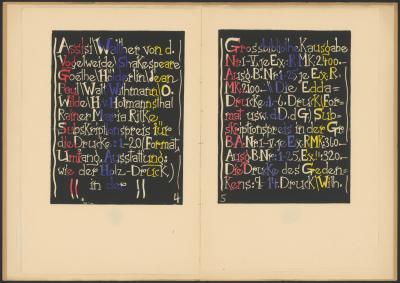 Assisi Walther von d.
Vogelweide Shakespeare
Goethe Hölderlin Jean
Paul Walt Withmann O.
Wilde H. v Hofmannsthal
Rainer Maria Rilke
Subskriptionspreis für
die Drucke: 1-20 (Format,
Umfang, Ausstattung:
wie der Holz-Druck.)
in der
4
Grossbibliophilausgabe
Nr. 1-V. je Ex: R MK 2400.-
Ausg. B. Nr: 1-25 je Ex. R.
MK. 2100.- Die Edda=
Drucke: 1.-6. Druck (For=
mat usw. d D d G) Sub=
skriptionspreis in der Gr
B A. Nr: 1-V. je Ex. RMK: 360.-
Ausg. B. Nr: 1-25, Ex.: 320.-
Die Drucke des Geden=
kens: 9. 14. Druck Wilh.
5